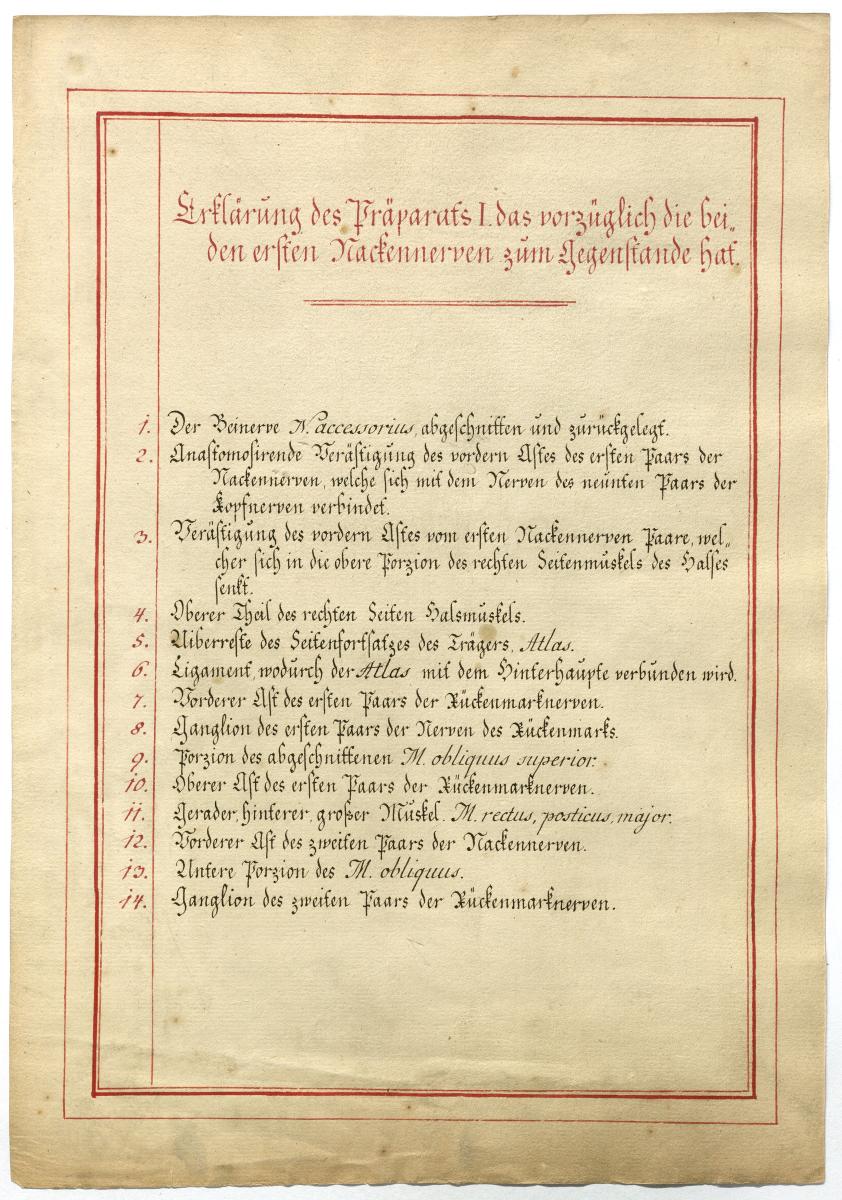 Erklärung des Präparats I. das vorzüglich die bei„
den ersten Nackennerven zum Gegenstande hat.
1. Der Beinerve N. accessorius, abgeschnitten und zurückgelegt.
2. Anastomosirende Verästigung des vordern Astes des ersten Paars der
Nackennerven, welche sich mit dem Nerven des neunten Paars der
Kopfnerven verbindet.
3. Verästigung des vordern Astes vom ersten Nackennerven Paare, wel„
cher sich in die obere Porzion des rechten Seitenmuskels des Halses
senkt.
4. Oberer Theil des rechten Seiten Halsmuskels.
5. Uiberreste des Seitenfortsatzes des Trägers, Atlas.
6. Ligament, wodurch der Atlas mit dem Hinterhaupte verbunden wird.
7. Vorderer Ast des ersten Paars der Rückenmarknerven.
8. Ganglion des ersten Paars der Nerven des Rückenmarks.
9. Porzion des abgeschnittenen M. obliquus superior.
10. Oberer Ast des ersten Paars der Rückenmarknerven.
11. Gerader, hinterer, großer Muskel. M. rectus, posticus, major.
12. Vorderer Ast des zweiten Paars der Nackennerven.
13. Untere Porzion des M. obliquus.
14. Ganglion des zweiten Paars der Rückenmarknerven.